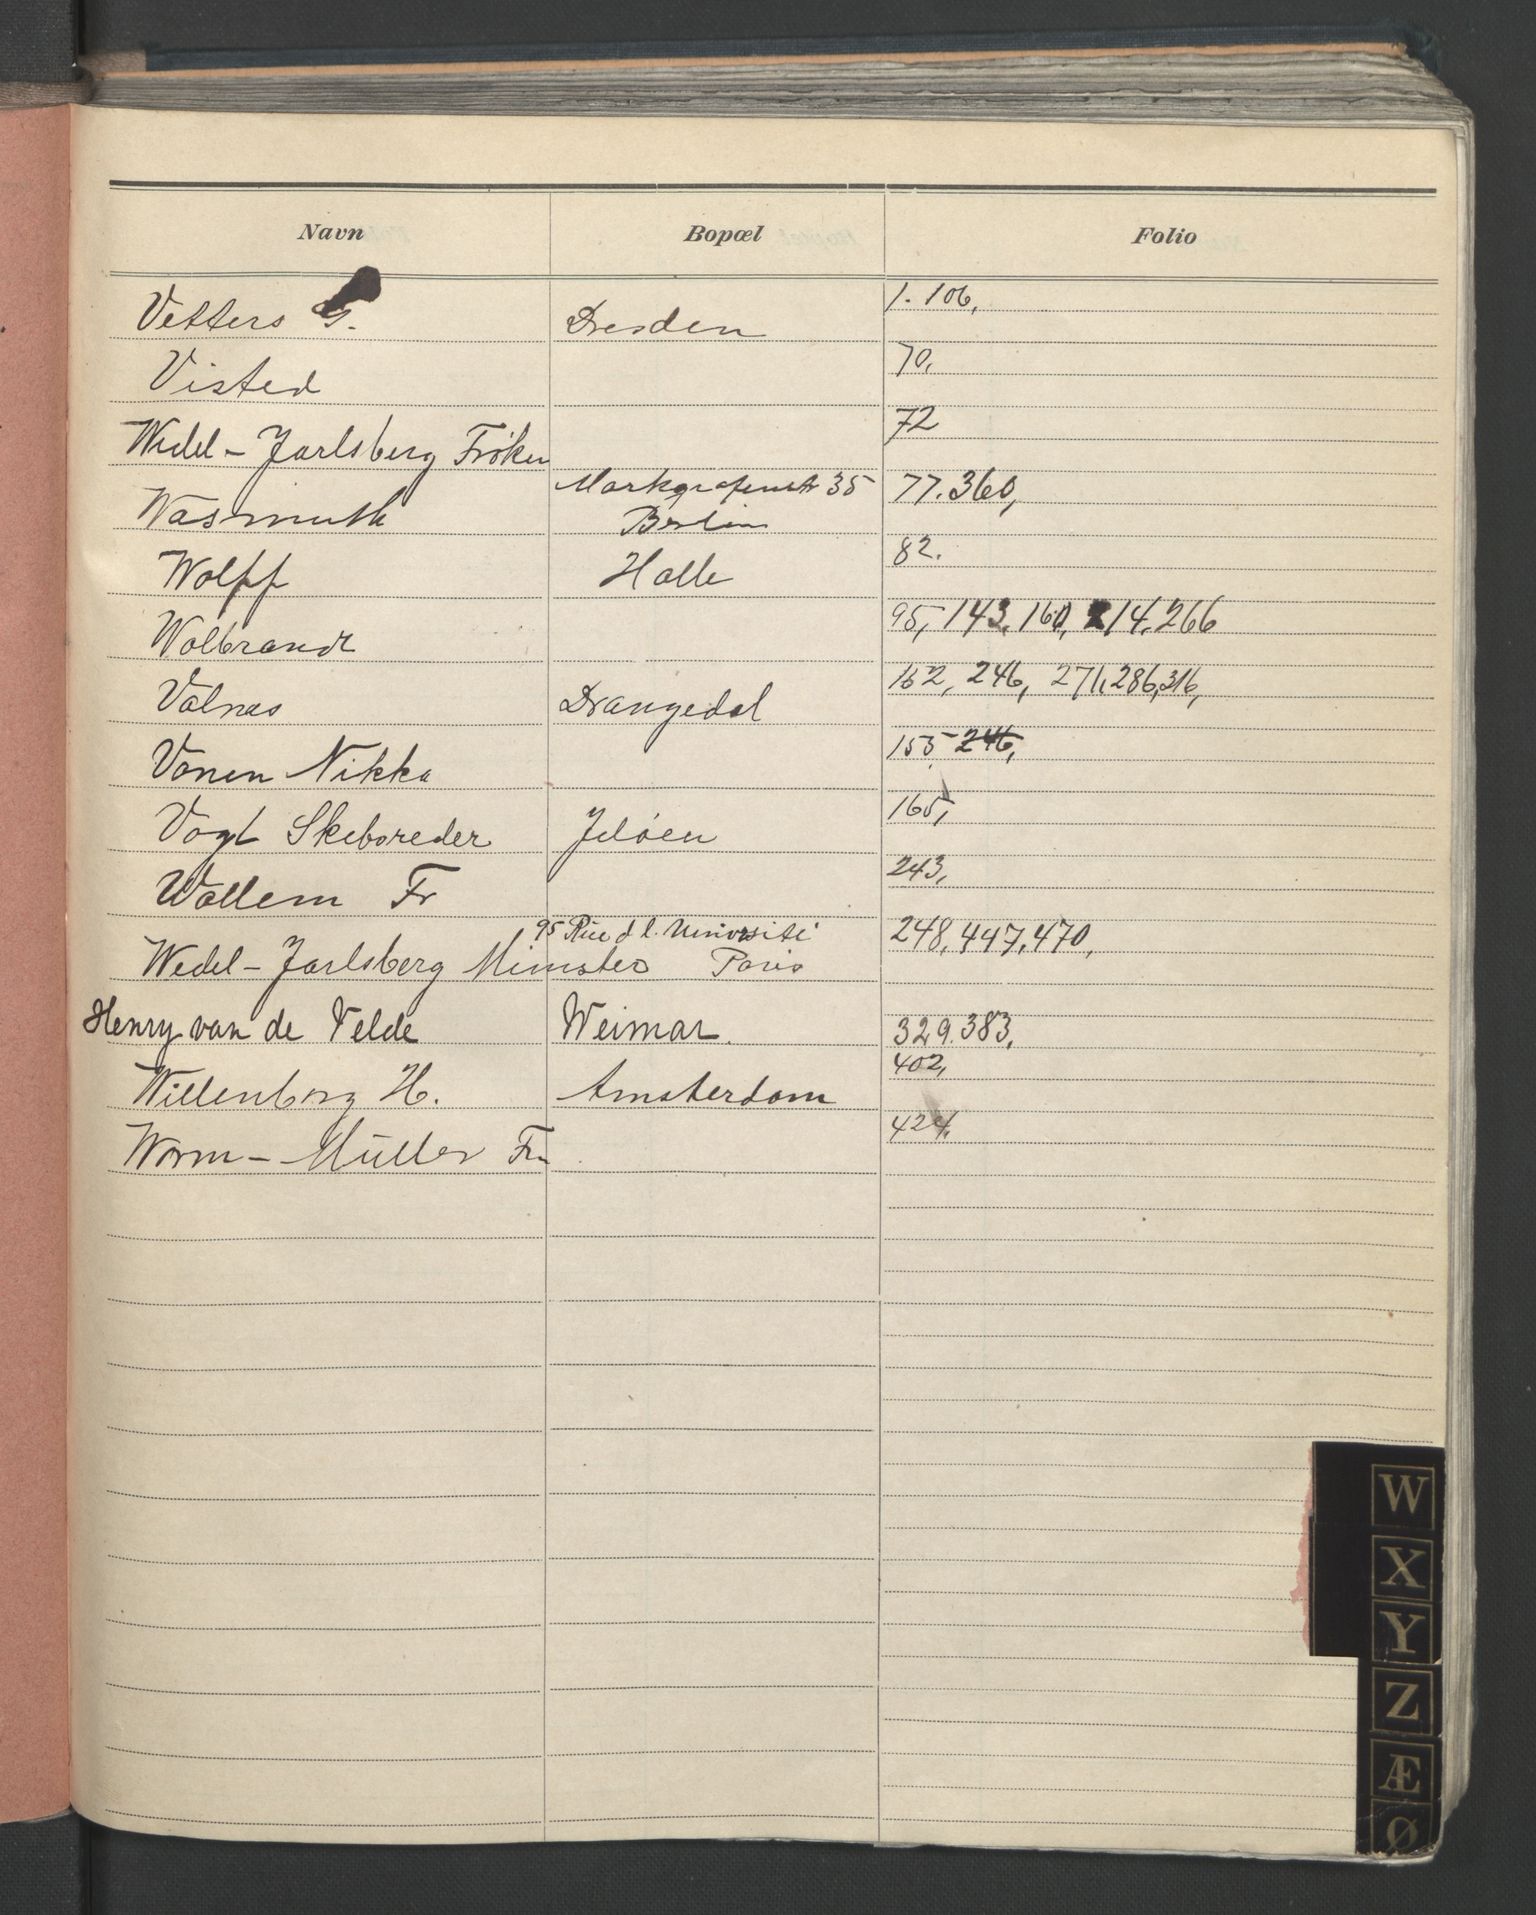 Navn Bopæl Folio
Vetters G. Dresden 1. 106,
Visted 70,
Wedel-Jarlsberg Frøken 72
Wasmuth Markgrafenstr 35 Berlin 77. 360,
Wolff Halle 82.
Wolbrandt 95, 143, 160, 214, 266
Valnæs Drangedal 152, 246, 271, 286, 316,
Vonen Nikka 155, 246,
Vogt Skibsreder Jeløen 165,
Wallem Fr 243,
Wedel-Jarlsberg Minister 95 Rue d l. Universiti Paris 248, 447, 470,
Henry van de Velde Weimar. 329. 383,
Willenborg H. Amsterdam 402,
Worm-Müller Fru 424,
W
X
Y
Z
Æ
Ø